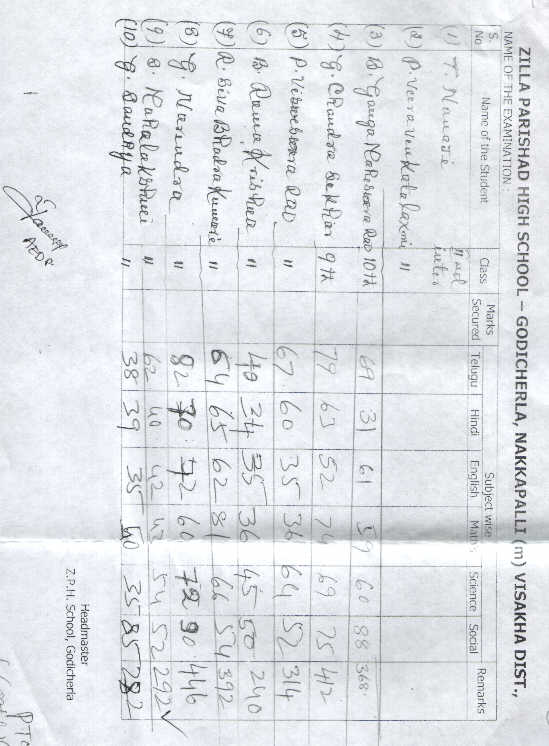 ZILLA PARISHAD HIGH SCHOOL – GODICHERLA, NAKKAPALLI (m) VISAKHA DIST.,
NAME OF THE EXAMINATION :
S. No Name of the Student Class Marks Secured Subject wise Remarks
Telugu Hindi English Maths Science Social
(1) T. IInd inter
(2) P. Veera Venkata laxmi "
(3) B. Ganga Maheswara Rao 10th 69 31 61 59 60 88 368
(4) G. Chandra Sekhar 9th 79 63 52 74 69 75 412
(5) P. Visweswara Rao " 67 60 35 36 64 52 314
(6) B. Rama Krishna " 40 34 35 36 45 50 240
(7) R. Siva Bhadra Kumari " 64 65 62 81 66 54 392
(8) G. Narendra " 82 70 72 60 72 90 446
(9) B. Mahalakshmi " 62 40 42 42 54 52 292 ✓
(10) G. Sandhya " 38 39 35 50 35 85 282
Headmaster
Z.P.H. School, Godicherla
PTO